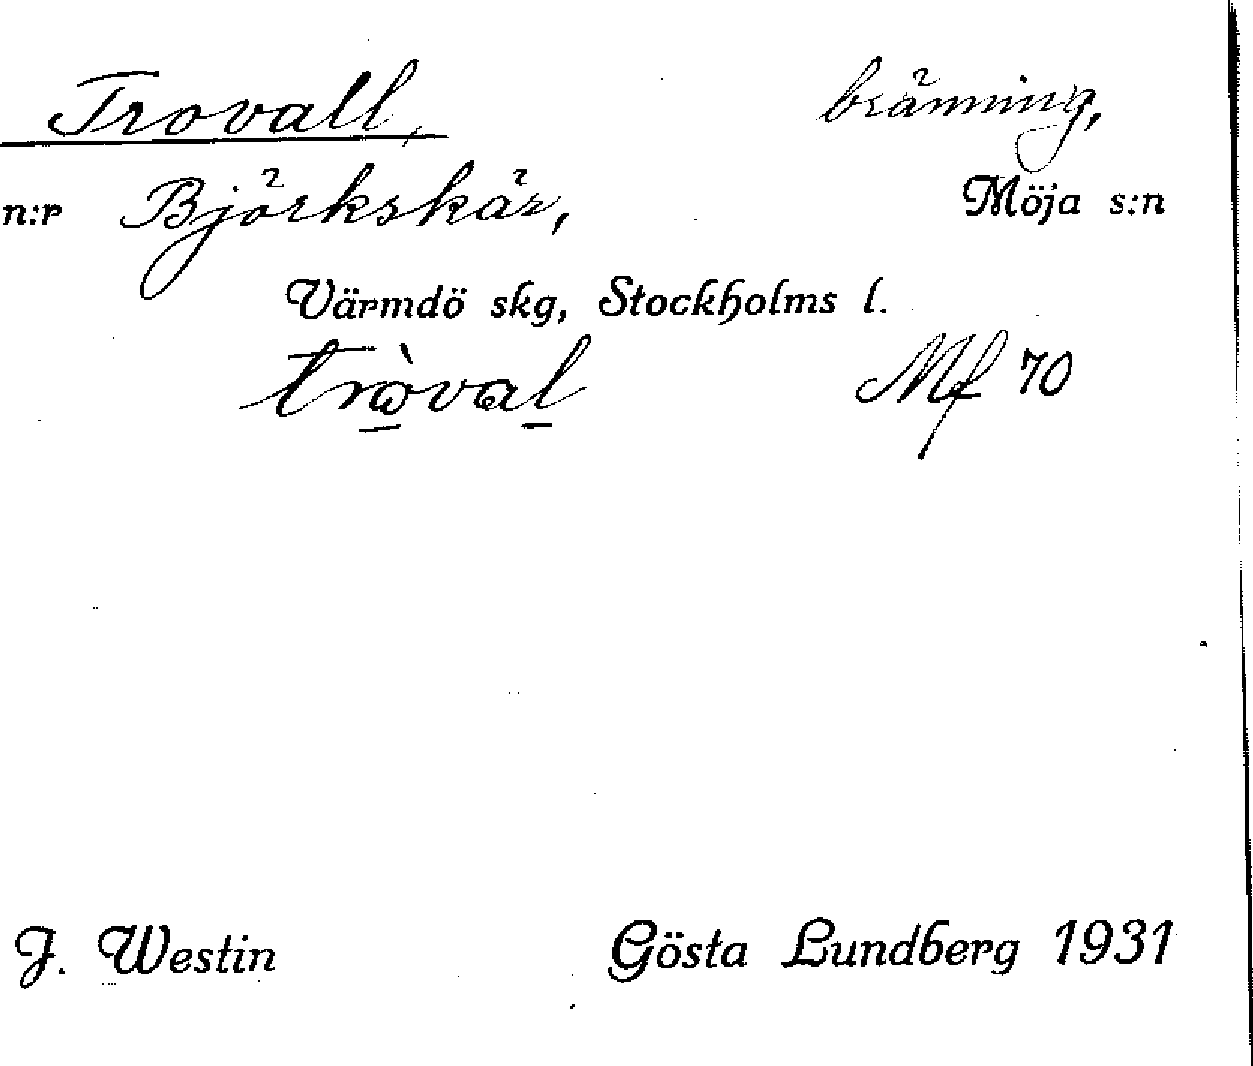 Trovall, bränning,
n:r Björkskär, Möja s:n
Värmdö skg, Stockholms l.
tròval Mf 70
J. Westin Gösta Lundberg 1931